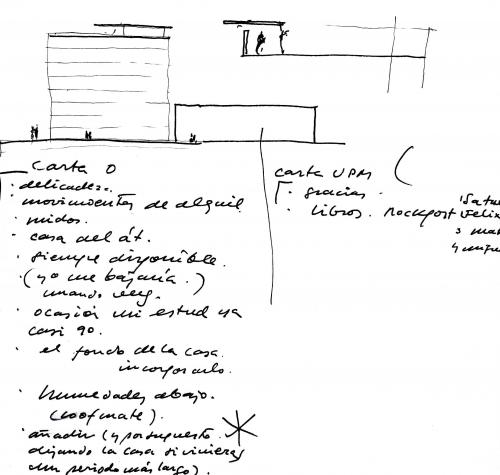 carta O
· delicadeza.
· movimientos de alquil
· nidos.
· casa del át.
· siempre disponible.
· (yo me bajaría.)
· ocasión mi estud ya
casi 90.
· el fondo de la casa.
incorporarlo.
· humedades abajo.
(roofmate).
· añadir (y por supuesto
dejando la casa si vivieras
un periodo más largo).
carta UPM
· gracias.
· libros. Rockport